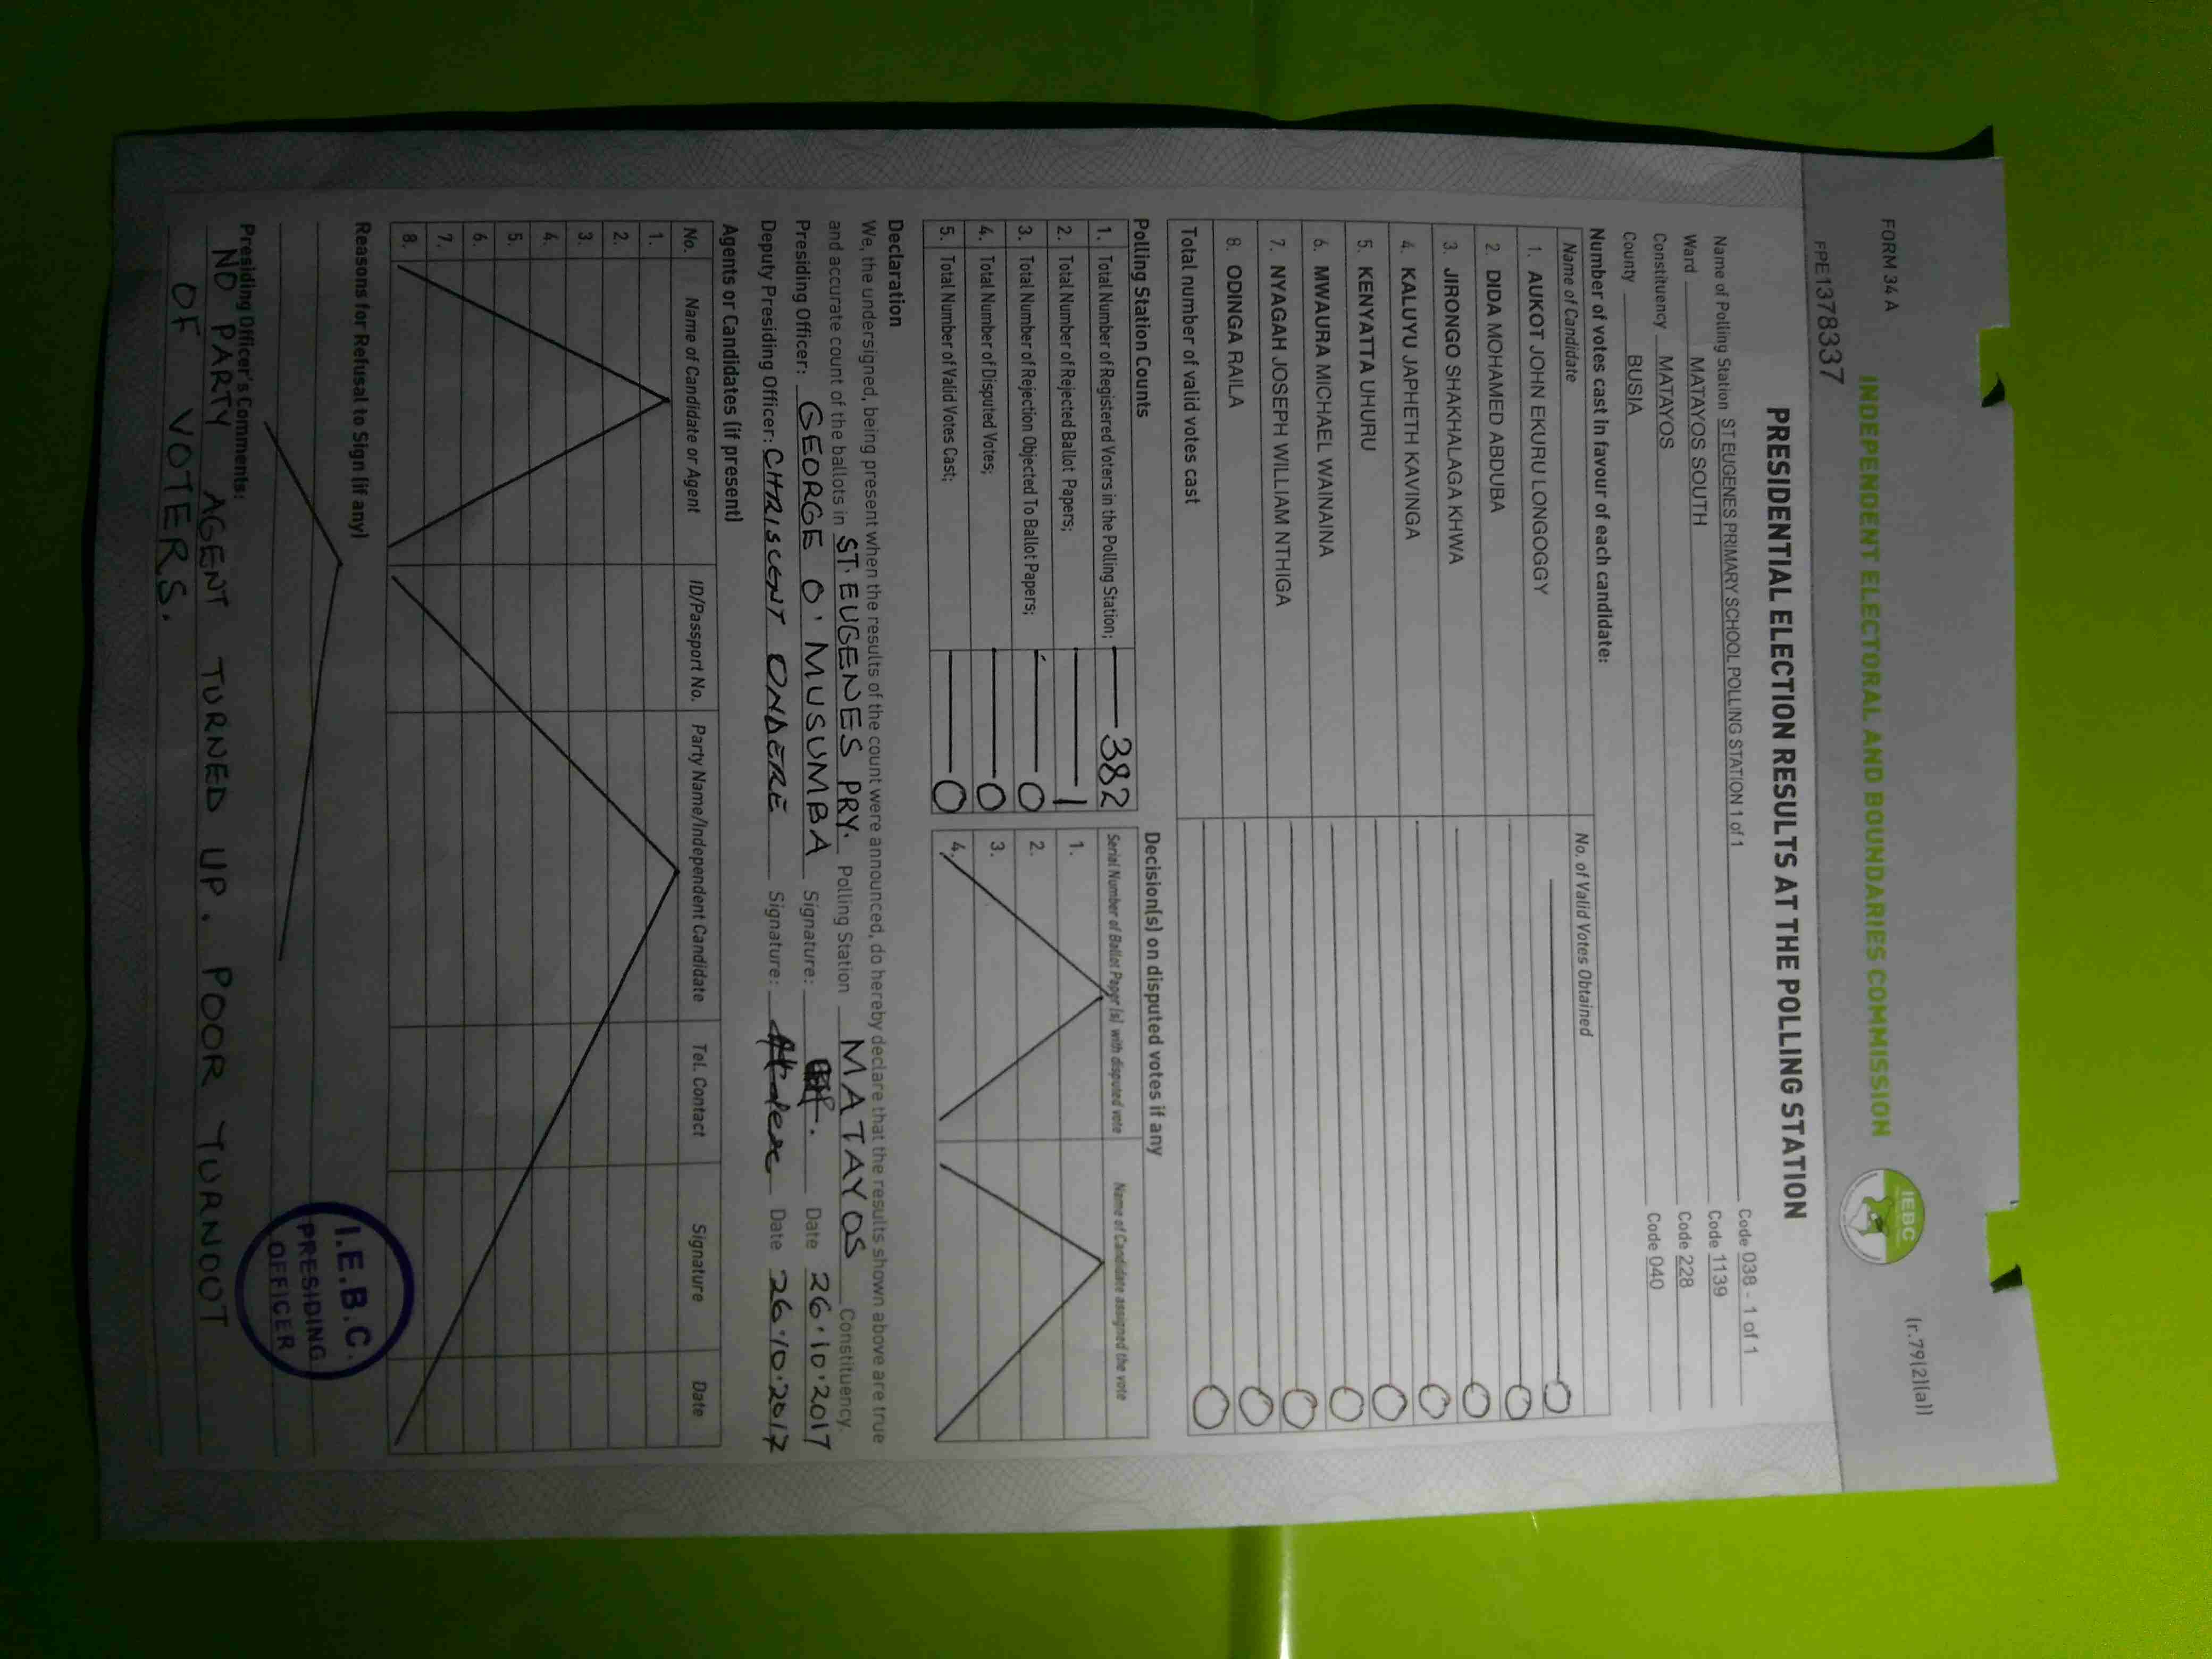 FORM 34 A
(r.79(2)(a))
INDEPENDENT ELECTORAL AND BOUNDARIES COMMISSION
IEBC
FPE1378337
PRESIDENTIAL ELECTION RESULTS AT THE POLLING STATION
Name of Polling Station ST EUGENES PRIMARY SCHOOL POLLING STATION 1 of 1 Code 038 - 1 of 1
Ward MATAYOS SOUTH Code 1139
Constituency MATAYOS Code 228
County BUSIA Code 040
Number of votes cast in favour of each candidate:
Name of Candidate No. of Valid Votes Obtained
1. AUKOT JOHN EKURU LONGOGGY 0
2. DIDA MOHAMED ABDUBA 0
3. JIRONGO SHAKHALAGA KHWA 0
4. KALUYU JAPHETH KAVINGA 0
5. KENYATTA UHURU 0
6. MWAURA MICHAEL WAINAINA 0
7. NYAGAH JOSEPH WILLIAM NTHIGA 0
8. ODINGA RAILA 0
Total number of valid votes cast 0
Polling Station Counts
1. Total Number of Registered Voters in the Polling Station; 382
2. Total Number of Rejected Ballot Papers; 1
3. Total Number of Rejection Objected To Ballot Papers; 0
4. Total Number of Disputed Votes; 0
5. Total Number of Valid Votes Cast; 0
Decision(s) on disputed votes if any
Serial Number of Ballot Paper (s) with disputed vote Name of Candidate assigned the vote
1.
2.
3.
4.
Declaration
We, the undersigned, being present when the results of the count were announced, do hereby declare that the results shown above are true
and accurate count of the ballots in ST. EUGENES PRY. Polling Station MATAYOS Constituency.
Presiding Officer: GEORGE O' MUSUMBA Signature: Date 26.10.2017
Deputy Presiding Officer: CHRISCENT ONDERE Signature: Date 26.10.2017
Agents or Candidates (if present)
No. Name of Candidate or Agent ID/Passport No. Party Name/Independent Candidate Tel. Contact Signature Date
1.
2.
3.
4.
5.
6.
7.
8.
Reasons for Refusal to Sign (if any)
I.E.B.C.
PRESIDING
OFFICER
Presiding Officer's Comments:
NO PARTY AGENT TURNED UP. POOR TURNOUT
OF VOTERS.